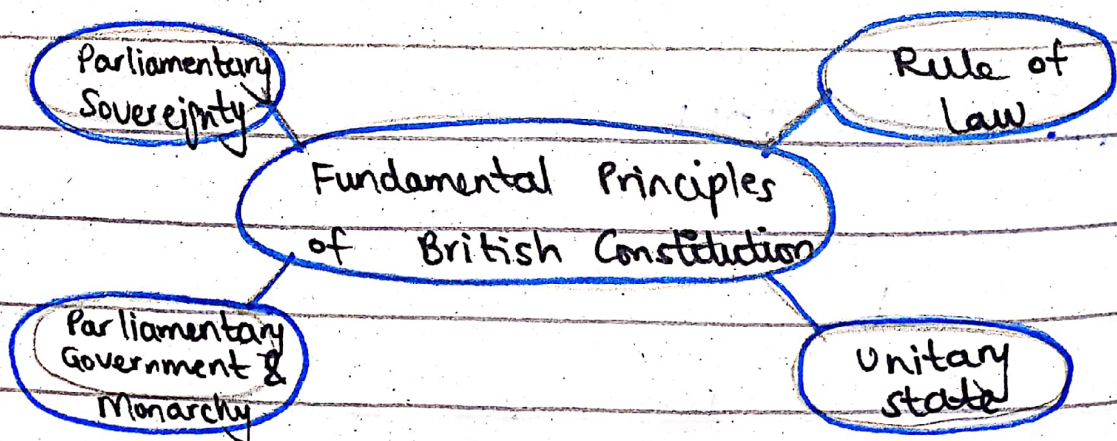 Parliamentary
Sovereignty
Rule of
Law
Fundamental Principles
of British Constitution
Parliamentary
Government &
Monarchy
Unitary
state